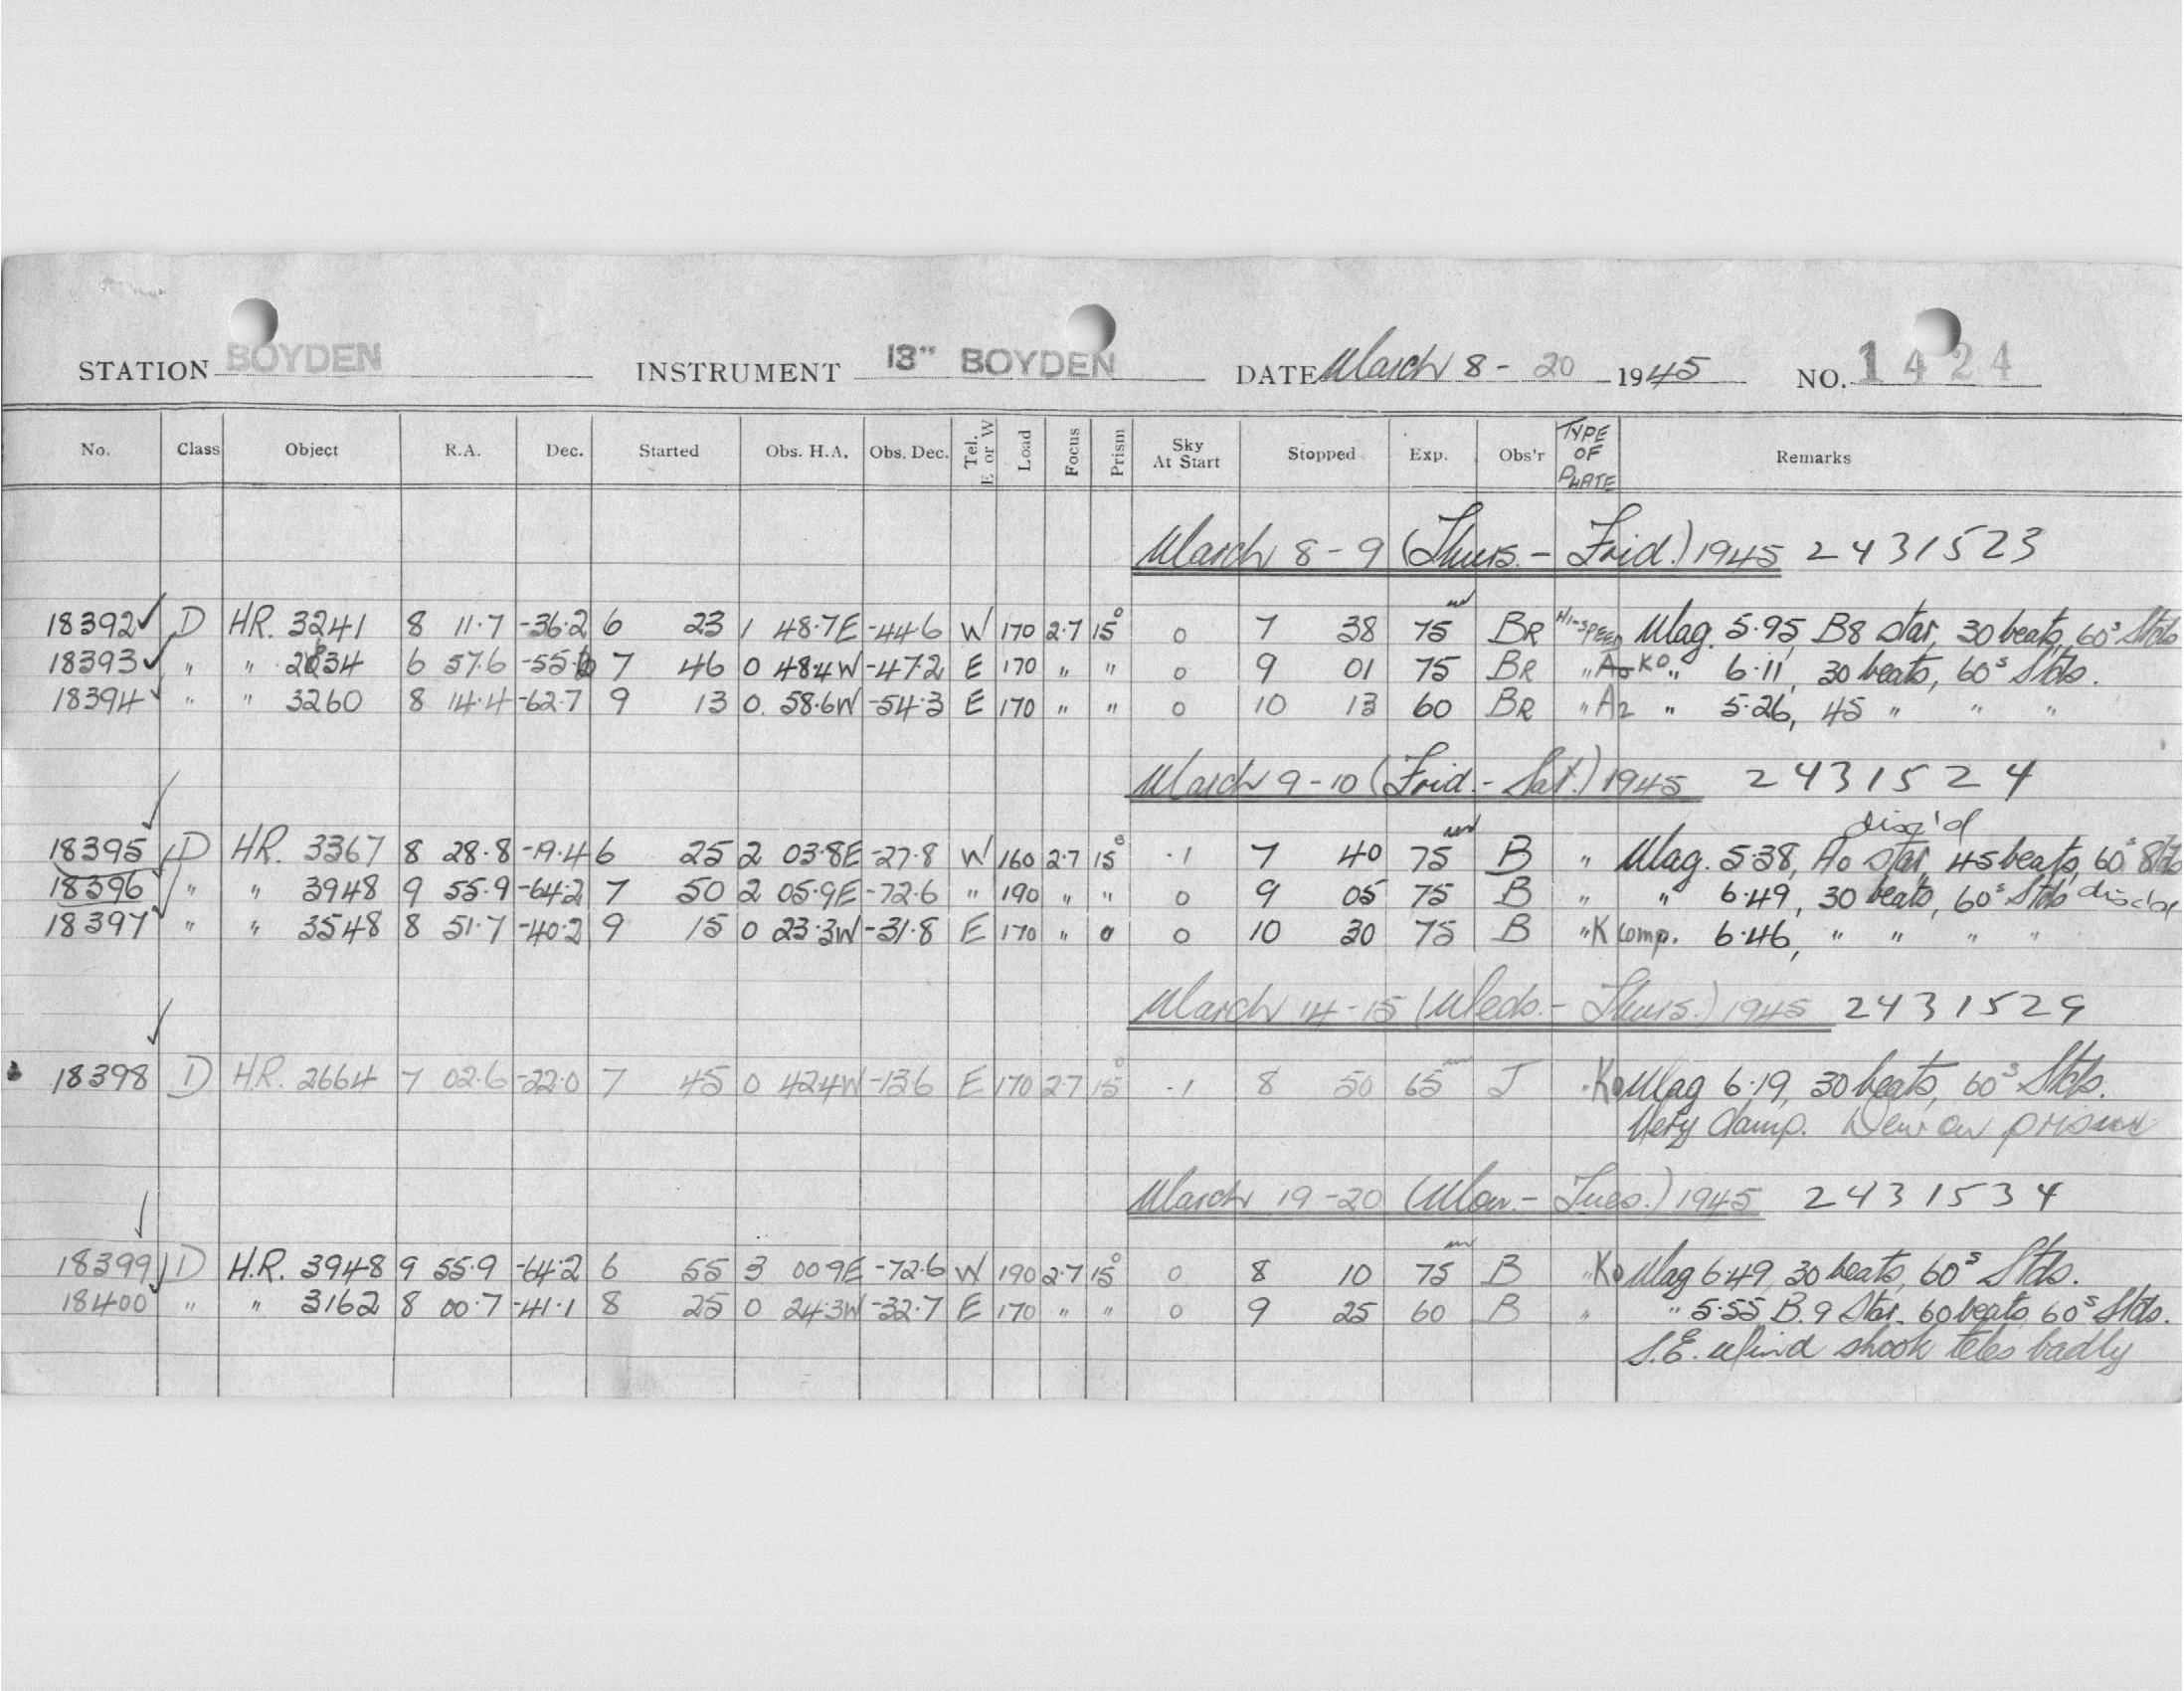 STATION BOYDEN INSTRUMENT 13" BOYDEN DATE March 8 - 20 1945 NO. 1424
No. Class Object R.A. Dec. Started Obs. H.A. Obs. Dec. Tel. E or W Load Focus Prism Sky At Start Stopped Exp. Obs'r TYPE OF PLATE Remarks
March 8 - 9 (Thurs. - Frid.) 1945 2431523
18392 ✓ D HR. 3241 8 11.7 -36.2 6 23 1 48.7E -44.6 W 170 2.7 15° 0 7 38 75m BR HI-SPEED Mag. 5.95, B8 star, 30 beats, 60s Stds
18393 ✓ " " 2634 6 57.6 7 46 0 48.4W -47.2 E 170 " " 0 9 01 75 BR " K0 " 6.11, 30 beats, 60s Stds.
18394 ✓ " " 3260 8 14.4 -62.7 9 13 0. 58.6W -54.3 E 170 " " 0 10 13 60 BR " A2 " 5.26, 45 " " "
March 9 - 10 (Frid. - Sat.) 1945 2431524
disc'd
18395 ✓ D HR. 3367 8 28.8 -19.4 6 25 2 03.8E -27.8 W 160 2.7 15° .1 7 40 75m B " Mag. 5.38, A0 star, 45 beats, 60s Stds
18396 ✓ " " 3948 9 55.9 -64.2 7 50 2 05.9E -72.6 " 190 " " 0 9 05 75 B " " 6.49, 30 beats, 60s Stds disc'd
18397 ✓ " " 3548 8 51.7 -40.2 9 15 0 23.3W -31.8 E 170 " 0 10 30 75 B " K comp. 6.46, " " " "
March 14 - 15 (Weds. - Thurs.) 1945 2431529
18398 ✓ D H.R. 2664 7 02.6 -22.0 7 45 0 42.4W -13.6 E 170 2.7 15° .1 8 50 65m J " K0 Mag 6.19, 30 beats, 60s Stds.
Very damp. Dew on prism
March 19 - 20 (Mon. - Tues.) 1945 2431534
18399 ✓ D H.R. 3948 9 55.9 -64.2 6 55 3 00.9E -72.6 W 190 2.7 15° 0 8 10 75m B " K0 Mag 6.49, 30 beats, 60s Stds.
18400 ✓ " " 3162 8 00.7 -41.1 8 25 0 24.3W -32.7 E 170 " " 0 9 25 60 B " " 5.55 B.9 Star. 60 beats, 60s Stds.
S.E. Wind shook teles badly